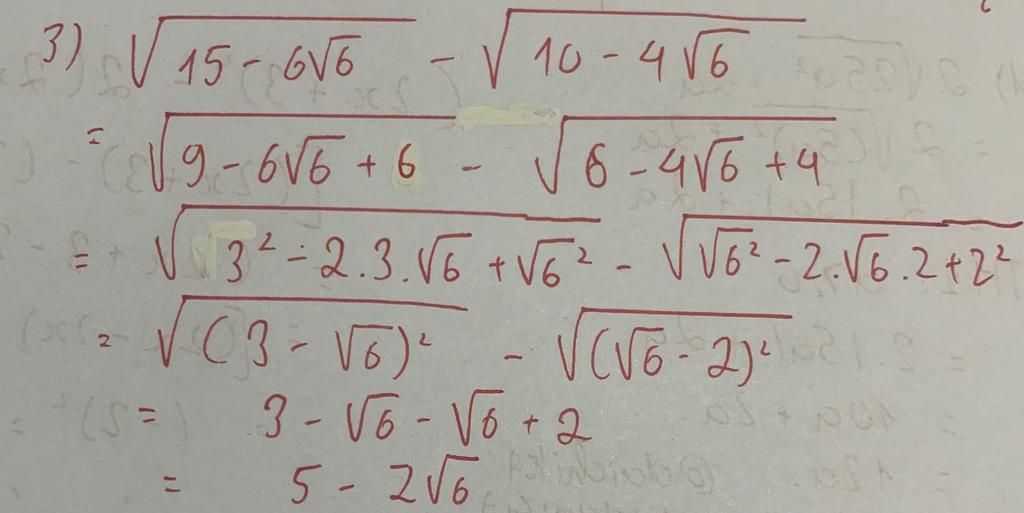 3) √(15 - 6√6) - √(10 - 4√6)
= √(9 - 6√6 + 6) - √(6 - 4√6 + 4)
= √(3² - 2.3.√6 + √6²) - √(√6² - 2.√6.2 + 2²)
= √((3 - √6)²) - √((√6 - 2)²)
= 3 - √6 - √6 + 2
= 5 - 2√6